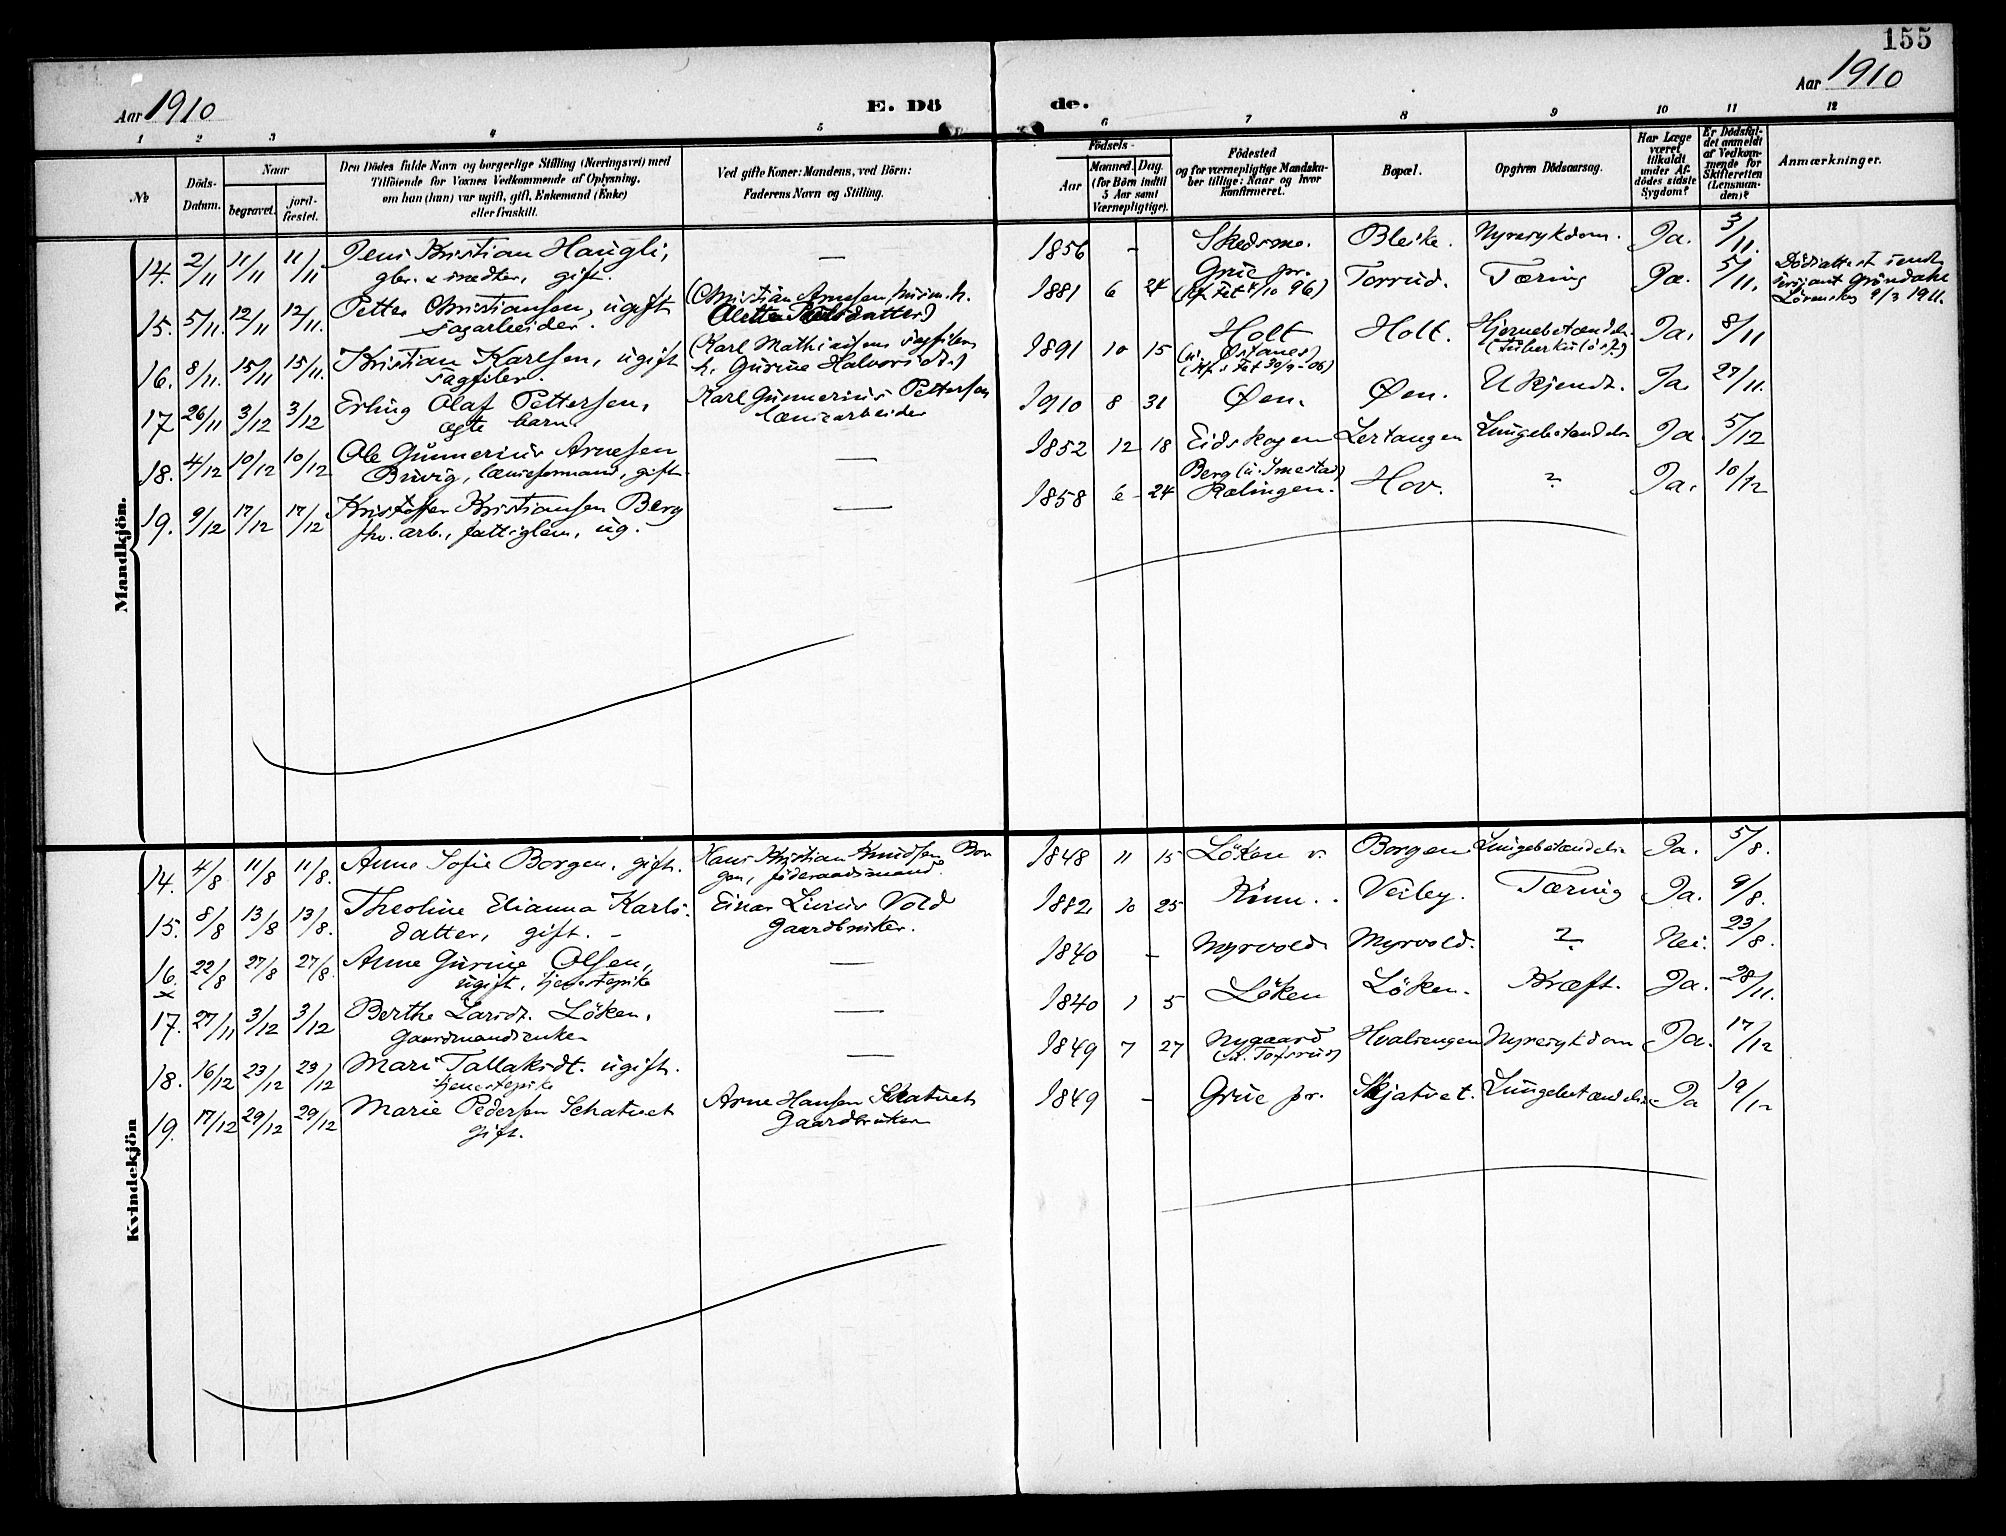 155
Aar 1910
E. Dö
de.
Aar 1910
1 2 3 4 5 6 7 8 9 10 11 12
№
Döds-Datum.
Naar
begravet.
jord-fæstet.
Den Dödes fulde Navn og borgerlige Stilling (Næringsvei) med
Tilföiende for Voxnes Vedkommende af Oplysning,
om han (hun) var ugift, gift, Enkemand (Enke)
eller fraskilt.
Ved gifte Koner: Mandens, ved Börn:
Faderens Navn og Stilling.
Födsels-
Aar
Maaned. Dag.
(for Börn indtil
5 Aar samt
Værnepligtige).
Födested
og for værnepligtige Mandska-
ber tillige: Naar og hvor
konfirmeret.
Bopæl.
Opgiven Dödsaarsag.
Har Læge
været
tilkaldt
under Af-
dödes sidste
Sygdom?
Er Dödsfal-
det anmeldt
af Vedkom-
mende for
Skifteretten
(Lensman-
den)?
Anmærkninger.
Mandkjön.
14. 2/11 11/11 11/11 Jens Kristian Haugli, — 1856 - Skedsmo. Bleike. Nyresykdom. Ja. 3/11.
gbr. & snedker, gift.
15. 5/11. 12/11 12/11. Petter Christiansen, ugift (Christian Arnesen 1881 6 24 Grue pr. Torrud. Tæring Ja. 5/11. Dödsattest sendt
Sagarbeider. (kf. Fet 4/10 96) Gröndahl
Lörenskog 9/3 1911.
16. 8/11. 15/11 15/11. Kristian Karlsen, ugift (Karl Mathiassen sagfiler 1891 10 15 Holt Holt. Hjernebetændelse Ja. 8/11
Sagfiler. h. Gurine Halvorsdt.) (u. Östanes) (tuberkulös?)
(kf. i Fet 30/9-06)
17 26/11 3/12 3/12 Erling Olaf Pettersen, Karl Gunnerius Pettersen 1910 8 31 Öen. Öen. Ukjendt. Ja. 27/11.
ægte barn. lænsearbeider
18. 4/12 10/12 10/12 Ole Gunnerius Arnesen — 1852 12 18 Eidskogen Lertangen Lungebetændelse Ja. 5/12
Buvig, lænseformand, gift.
19. 9/12 17/12 17/12 Kristoffer Kristiansen Berg — 1858 6 - 24 Berg (u. Imestad) Hov. ? Ja. 10/12
fhv. arb., fattiglem, ug. Rælingen.
Kvindekjön
14. 4/8 11/8 11/8. Anne Sofie Borgen, gift. Hans Kristian Knudsen Bor 1848 11 15 Löken v. Borgen Lungebetændelse Ja. 5/8.
gen, föderaadsmand.
15. 8/8 13/8 13/8. Theoline Elianna Karls- Einar Livius Vold 1882. 10 25 Vestby. Tæring Ja. 9/8.
datter, gift. - Gaardbruker.
16. 22/8 27/8 27/8. Anne Gurine Olsen, — 1840 - Myrvold Myrvold. ? Nei. 23/8.
x ugift, tjenestepike
17. 27/11 3/12 3/12 Berthe Larsdt. Löken, — 1840 1 5 Löken Löken. Kræft. Ja. 28/11.
Gaardmandsenke
18. 16/12 23/12 23/12 Mari Tallaksdt. ugift. — 1849 7 27 Nygaard Hvalsengen Nyresykdom Ja. 17/12
tjenestepike (u. Tofsrud)
19. 17/12 29/12 29/12 Marie Pedersen Schatvet Arne Hansen Skatvet 1849 - Grue pr. Skjatvet. Lungebetændelse Ja 19/12
gift. Gaardbruker